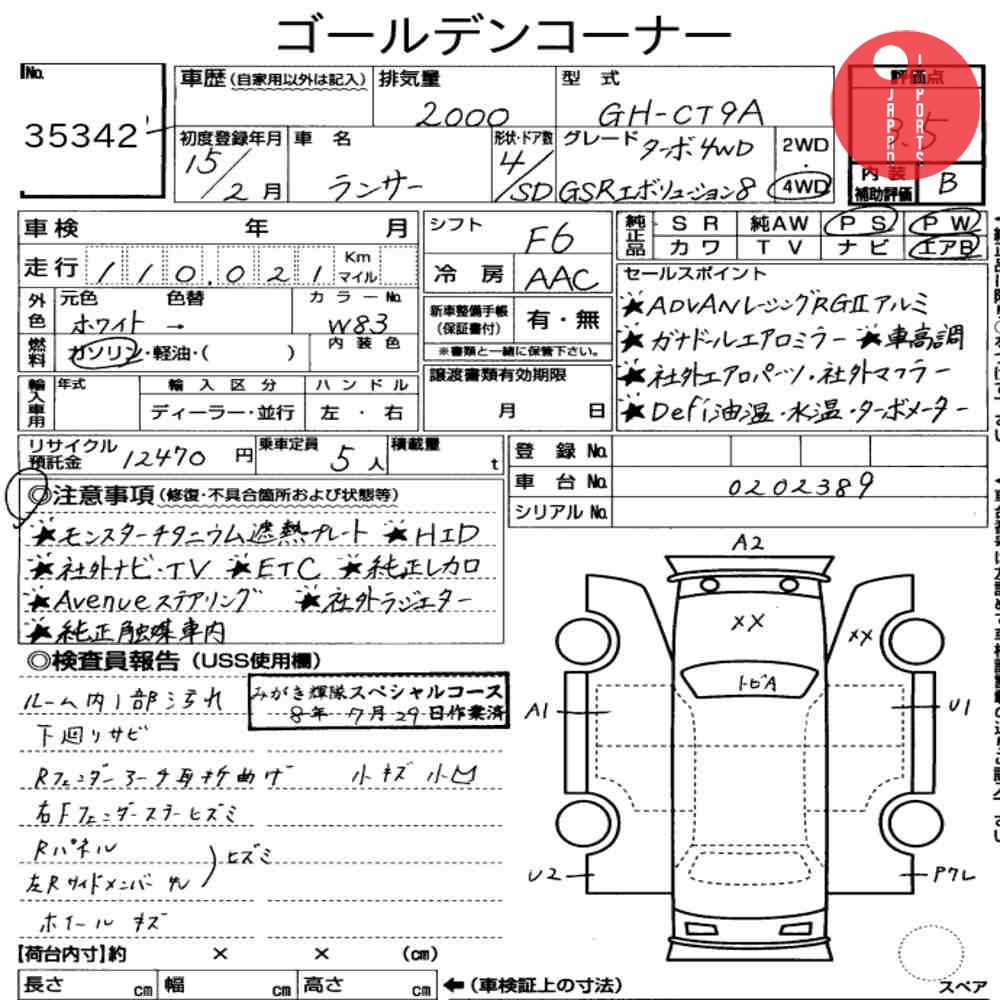 ゴールデンコーナー
No.
35342
車歴(自家用以外は記入)
排気量
2000
型 式
GH-CT9A
評価点
3.5
JAPAN
IMPORTS
初度登録年月
15/2月
車 名
ランサー
形状・ドア数
4/SD
グレード ターボ4WD
GSRエボリューション8
2WD
・
4WD
内 装
補助評価
B
車検 年 月
シフト
F6
純正品
SR 純AW PS PW
カワ TV ナビ エアB
走行 110,021 Km
マイル
冷 房
AAC
セールスポイント
★ADVANレーシングRGⅡアルミ
★ガナドールエアロミラー ★車高調
★社外エアロパーツ・社外マフラー
★Defi油温・水温・ターボメーター
外色
元色 色替
ホワイト →
カラーNo.
W83
新車整備手帳
(保証書付)
有・無
※書類と一緒に保管下さい。
燃料
ガソリン・軽油・( )
内装色
輸入車用
年式
輸入区分
ディーラー・並行
ハンドル
左・右
譲渡書類有効期限
月 日
リサイクル
預託金
12470 円
乗車定員
5人
積載量
t
登 録 No.
車 台 No.
0202389
シリアル No.
◎注意事項(修復・不具合箇所および状態等)
★モンスターチタニウム遮熱プレート ★HID
★社外ナビ・TV ★ETC ★純正レカロ
★Avenueステアリング ★社外ラジエター
★純正触媒車内
◎検査員報告(USS使用欄)
ルーム内1部汚れ
みがき輝隊スペシャルコース
8年 7月29日作業済
下廻りサビ
Rフェンダーアーチ耳折曲げ 小キズ小凹
右Fフェンダーステーヒズミ
Rパネル
左Rサイドメンバー
ヒズミ
ホイールキズ
A2
××
××
トビA
A1
U1
U2
Pクレ
【荷台内寸】約 × × (cm)
長さ cm 幅 cm 高さ cm ←(車検証上の寸法)
スペア